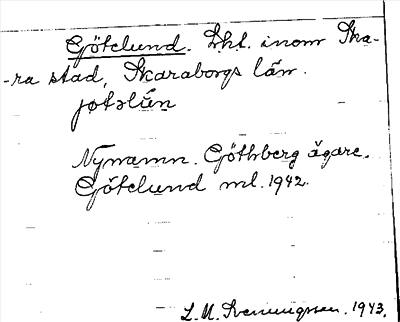 Götelund. Lht. inom Ska-
-ra stad, Skaraborgs län.
jøtəlún
Nynamn. Göthberg ägare.
Götelund ml. 1942.
L. M. Svenungsson. 1943.